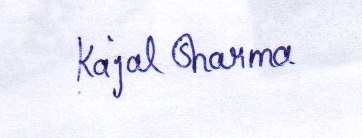 Kajal Sharma